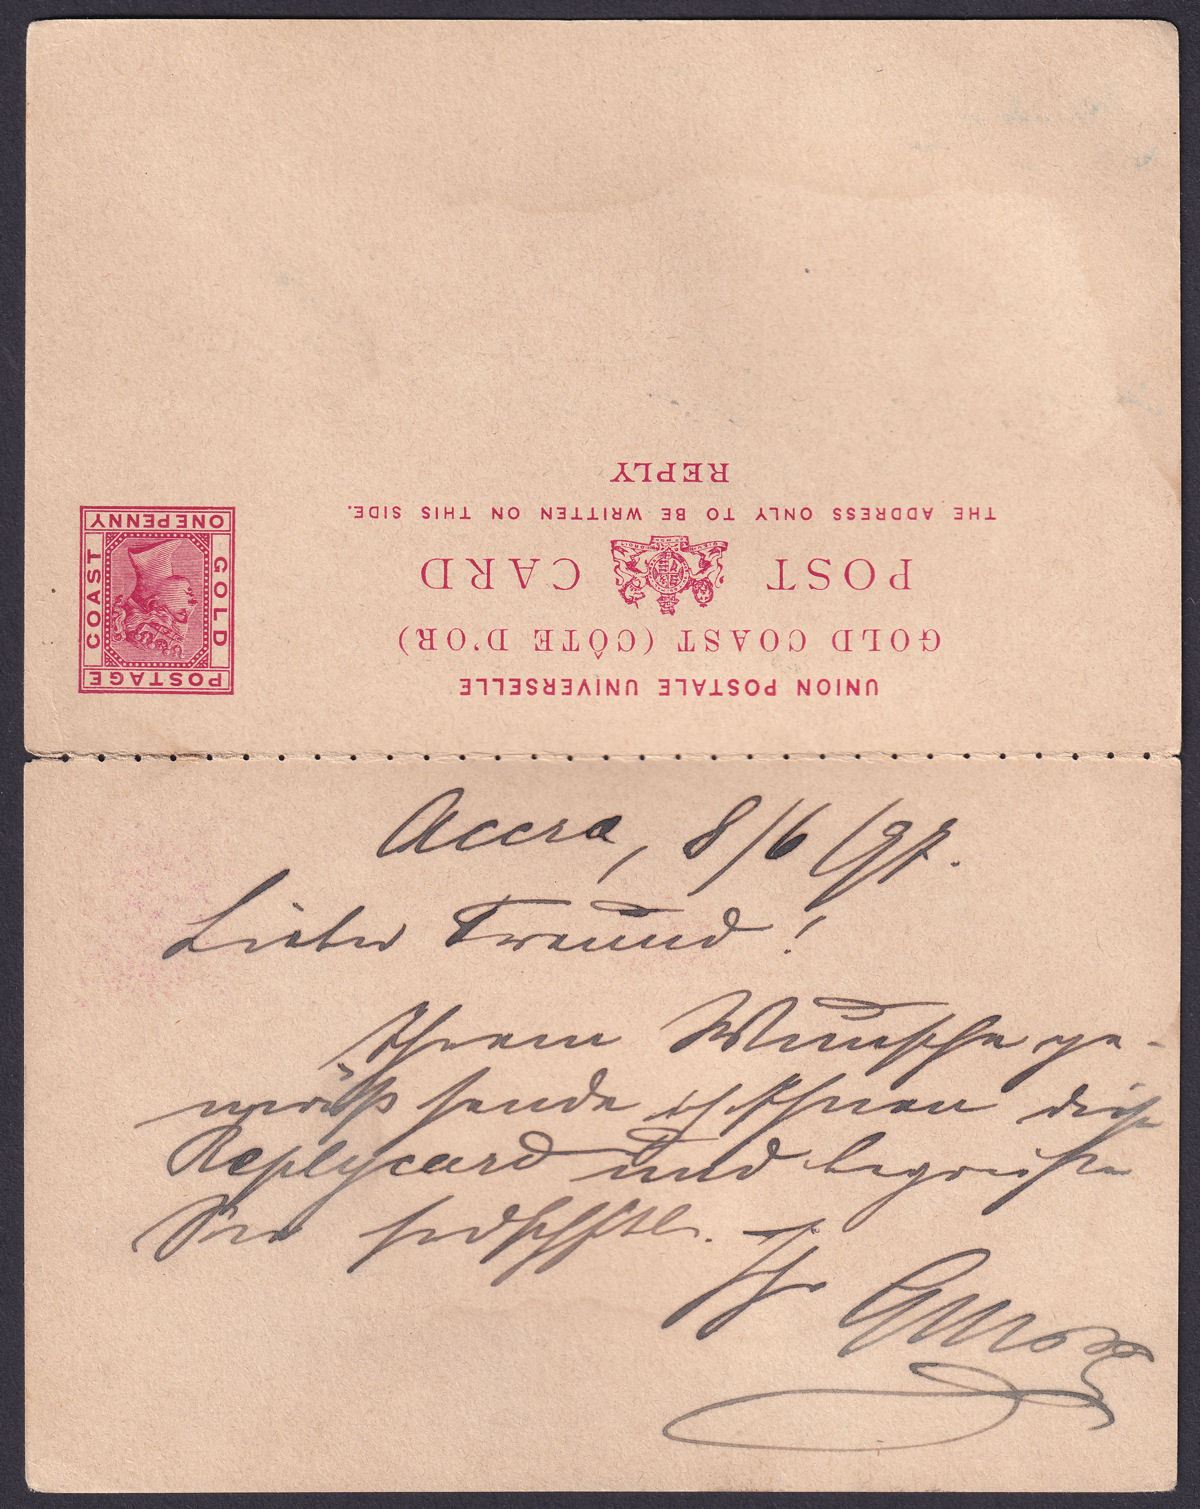 UNION POSTALE UNIVERSELLE
GOLD COAST (CÔTE D'OR)
POST CARD
THE ADDRESS ONLY TO BE WRITTEN ON THIS SIDE.
REPLY
POSTAGE
GOLD
COAST
ONE PENNY
Accra, 8/6/97.
Lieber Freund!
Ihrem Wunsche ge-
mäß sende ich Ihnen diese
Replycard und begrüße
Sie frdschftl.
Ihr